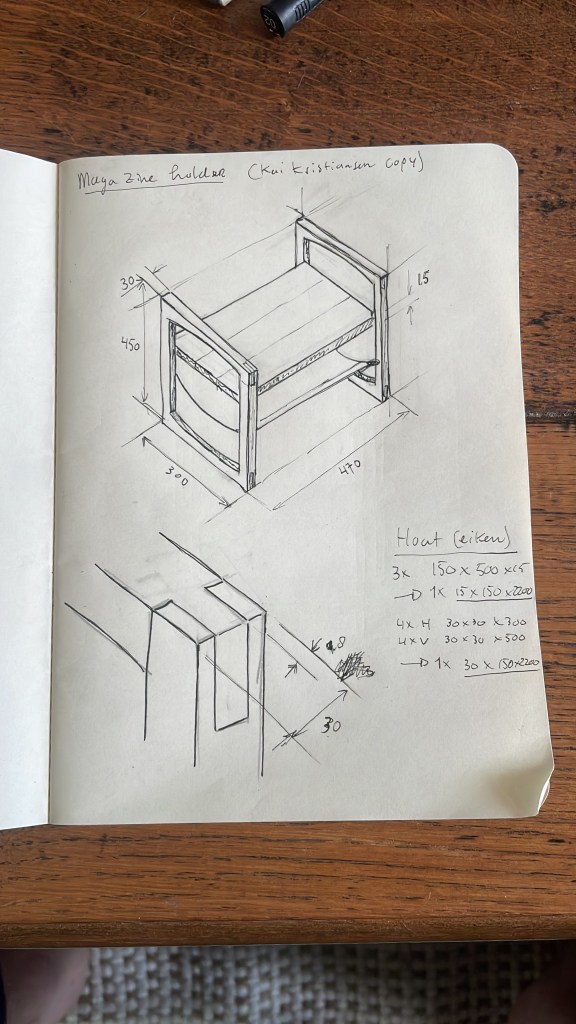 Magazine holder (Kai Kristiansen copy)
30
15
450
300
470
Hout (eiken)
3x 150 x 500 x 15
→ 1x 15 x 150 x 2200
4x H 30 x 30 x 300
4x V 30 x 30 x 500
→ 1x 30 x 150 x 2200
8
30